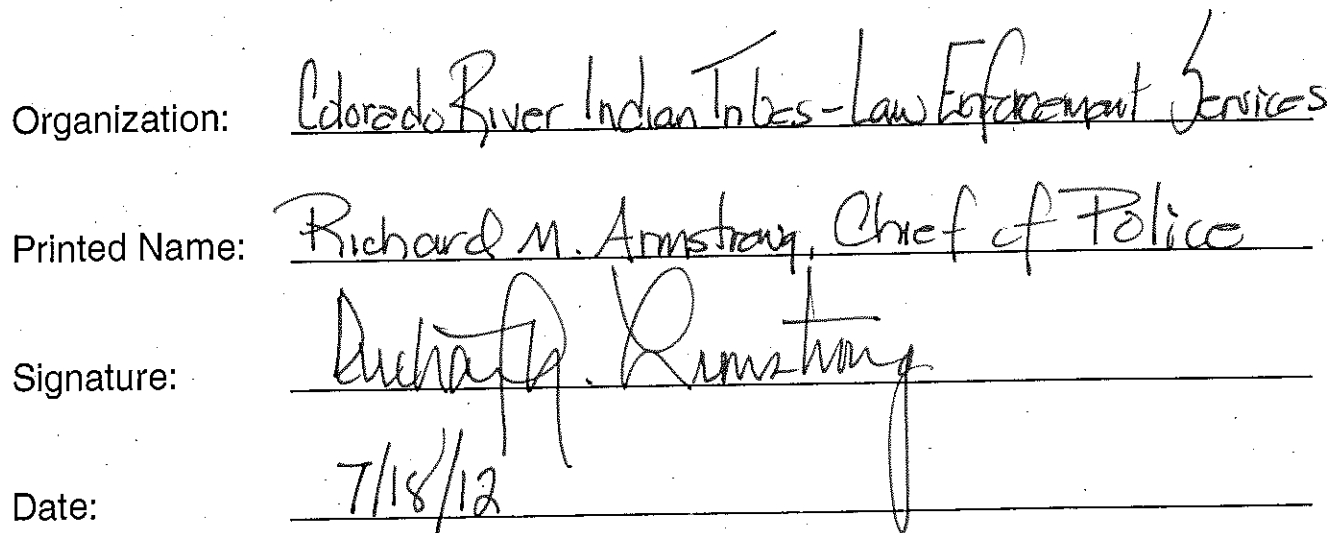 Organization: Colorado River Indian Tribes - Law Enforcement Services
Printed Name: Richard M. Armstrong, Chief of Police
Signature: Richard M. Armstrong
Date: 7/18/12